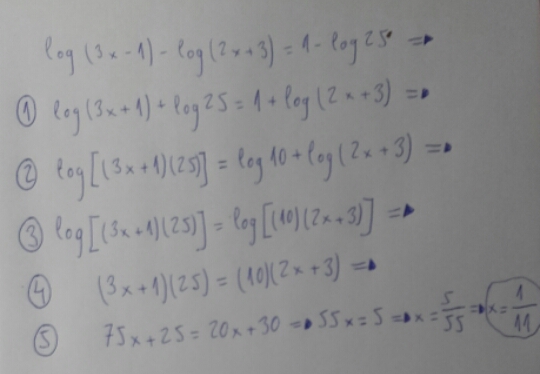 log (3x-1) - log(2x+3) = 1 - log25 =>
① log(3x+1) + log25 = 1 + log(2x+3) =>
② log[(3x+1)(25)] = log10 + log(2x+3) =>
③ log[(3x+1)(25)] = log[(10)(2x+3)] =>
④ (3x+1)(25) = (10)(2x+3) =>
⑤ 75x+25 = 20x+30 => 55x = 5 => x = 5/55 => x = 1/11